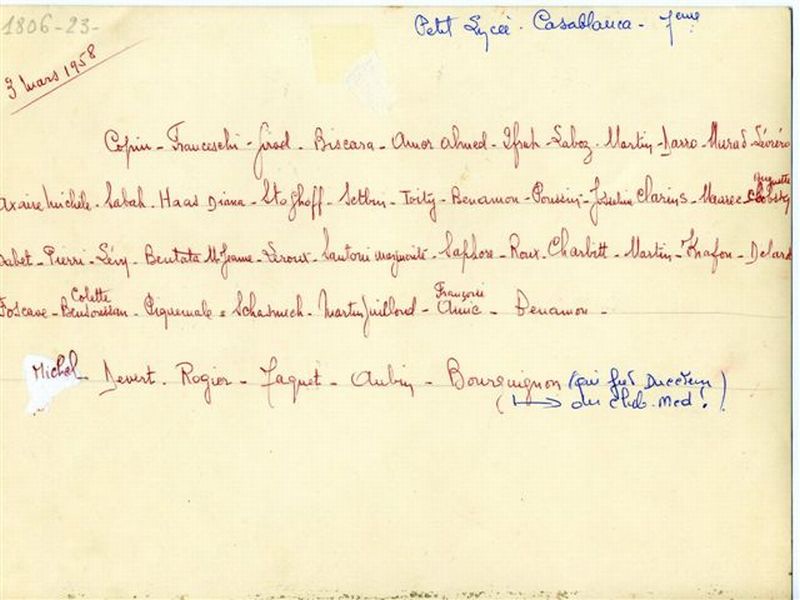 1806-23-
Petit Lycée. Casablanca - 7ème
3 mars 1958
Copin - Franceschi - Girod - Biscara - Amor Ahmed - Ifrah - Laboz - Martin - Darro - Murad - Lévréro
Axaire Michèle. Sabah. Haas Diana - Stoghoff - Setbun - Toity - Benamon - Poussin - Josseline Clarins - Maurec - Huguette
Sabet - Pierri - Lévy - Bentata M. Jeanne - Leroux - Santoni Marguerite - Saphore - Roux - Charbitt - Martin - Krafon - Delard
Foscave - Colette Bensoussan - Piquemale - Schasmech - Martin Juillord - Françoise Amic - Benamon -
Michel Devert. Rogier - Jaquet - Aubin - Bourguignon (qui fut Directeur
du club. Med !)